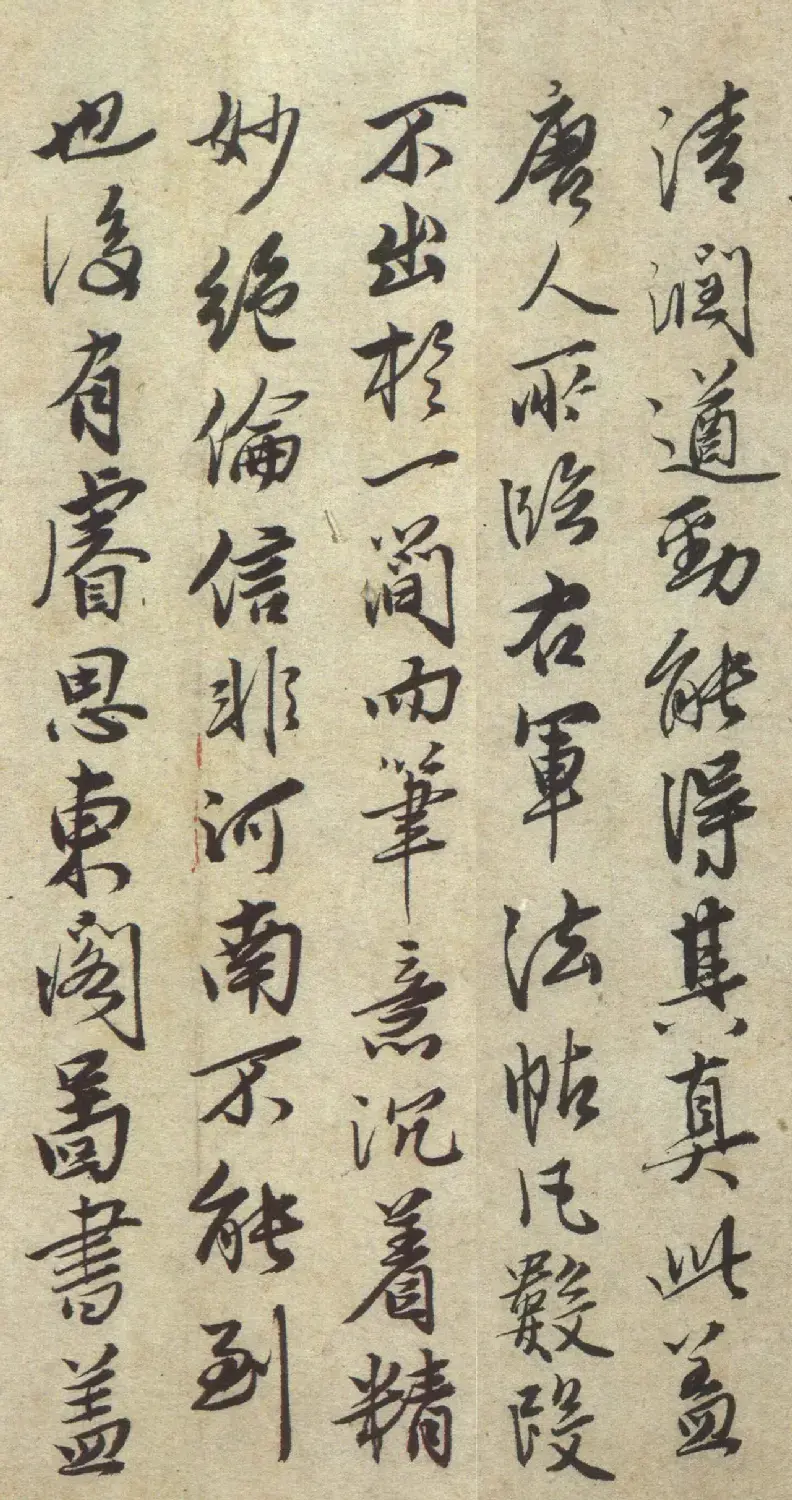 清潤遒勁能得其真此盖
唐人所臨右軍法帖凡數段
不出於一簡而筆意沉着精
妙絶倫信非河南不能到
也後有睿思東閣圖書盖